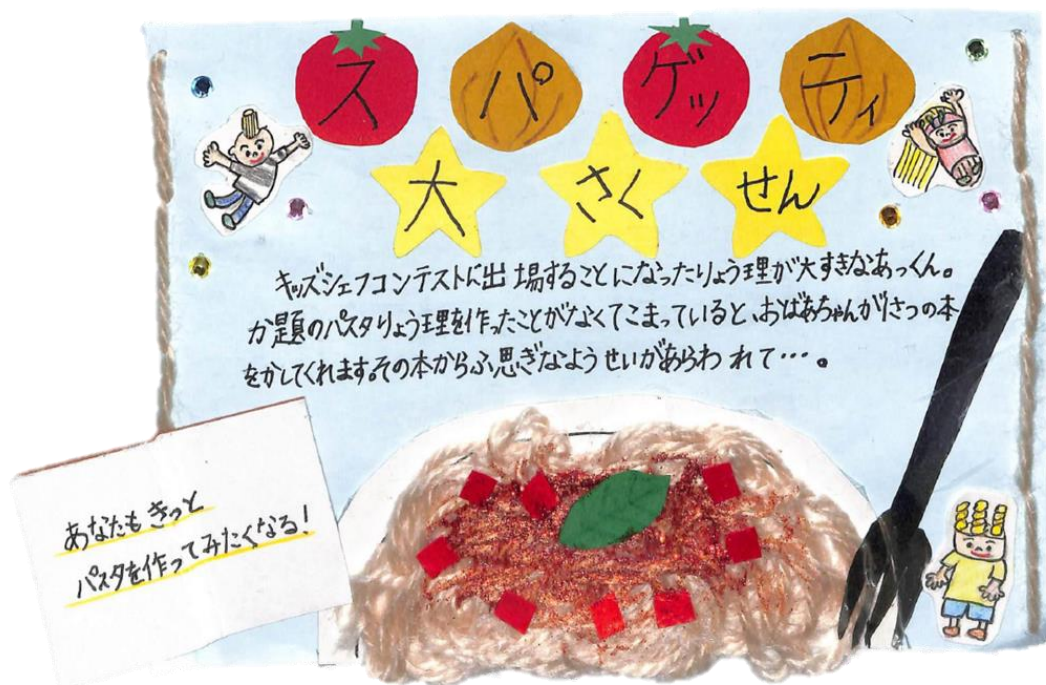 スパゲッティ
大さくせん
キッズシェフコンテストに出場することになったりょう理が大すきなあっくん。
か題のパスタりょう理を作ったことがなくてこまっていると、おばあちゃんが1さつの本
をかしてくれます。その本からふ思ぎなようせいがあらわれて…。
あなたもきっと
パスタを作ってみたくなる!